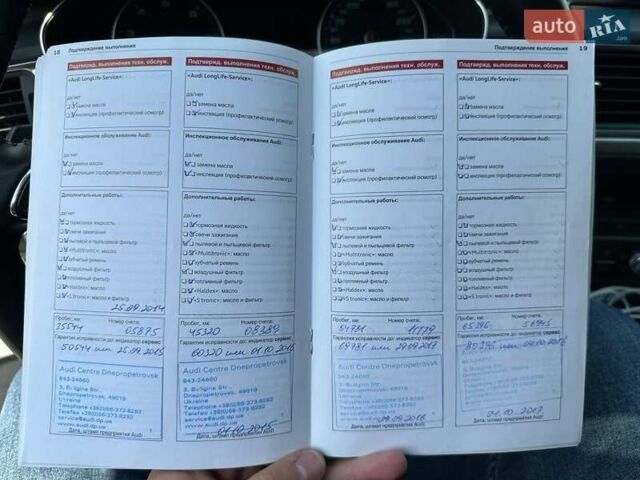 auto RIA .com
18 Подтверждение выполнения
Подтвержд. выполнения техн. обслуж.
«Audi LongLife-Service»:
да/нет
замена масла
инспекция (профилактический осмотр)
Инспекционное обслуживание Audi:
да/нет
замена масла
инспекция (профилактический осмотр)
Дополнительные работы:
да/нет
тормозная жидкость
свечи зажигания
пылевой и пыльцевый фильтр
«Multitronic»: масло
зубчатый ремень
воздушный фильтр
топливный фильтр
«Haldex»: масло
«S tronic»: масло и фильтр
25.09.2014
Пробег, км: Номер счета:
35044 05875
Гарантия исправности до: индикатор сервисо
50644 или 25.09.2015
Audi Centre Dnepropetrovsk
843-24660
3, Bulgina Str.,
Dnepropetrovsk, 49019
Ukraine
Telephone +380(56)-373-8282
Telefax +380(56)-373-8292
service@audi.dp.ua
www.audi.dp.ua
Дата, штамп предприятия Audi
Подтвержд. выполнения техн. обслуж.
«Audi LongLife-Service»:
да/нет
замена масла
инспекция (профилактический осмотр)
Инспекционное обслуживание Audi:
да/нет
замена масла
инспекция (профилактический осмотр)
Дополнительные работы:
да/нет
тормозная жидкость
свечи зажигания
пылевой и пыльцевый фильтр
«Multitronic»: масло
зубчатый ремень
воздушный фильтр
топливный фильтр
«Haldex»: масло
«S tronic»: масло и фильтр
Пробег, км: Номер счета:
45320 08389
Гарантия исправности до: индикатор сервисо
60320 или 01.10.2016
Audi Centre Dnepropetrovsk
843-24660
Dnepropetrovsk, 49019
Ukraine
www.audi.dp.ua
01.10.2015
Дата, штамп предприятия Audi
Подтверждение выполнения 19
Подтвержд. выполнения техн. обслуж.
«Audi LongLife-Service»:
да/нет
замена масла
инспекция (профилактический осмотр)
Инспекционное обслуживание Audi:
да/нет
замена масла
инспекция (профилактический осмотр)
Дополнительные работы:
да/нет
тормозная жидкость
свечи зажигания
пылевой и пыльцевый фильтр
«Multitronic»: масло
зубчатый ремень
воздушный фильтр
топливный фильтр
«Haldex»: масло
«S tronic»: масло и фильтр
Пробег, км: Номер счета:
54731 11779
Гарантия исправности до: индикатор сервисо
69731 или 29.09.2017
Audi Centre Dnepropetrovsk
29.09.2016
Дата, штамп предприятия Audi
Подтвержд. выполнения техн. обслуж.
«Audi LongLife-Service»:
да/нет
замена масла
инспекция (профилактический осмотр)
Инспекционное обслуживание Audi:
да/нет
замена масла
инспекция (профилактический осмотр)
Дополнительные работы:
да/нет
тормозная жидкость
свечи зажигания
пылевой и пыльцевый фильтр
«Multitronic»: масло
зубчатый ремень
воздушный фильтр
топливный фильтр
«Haldex»: масло
«S tronic»: масло и фильтр
Пробег, км: Номер счета:
65396
Гарантия исправности до: индикатор сервисо
80396 или
01.10.2017
Дата, штамп предприятия Audi